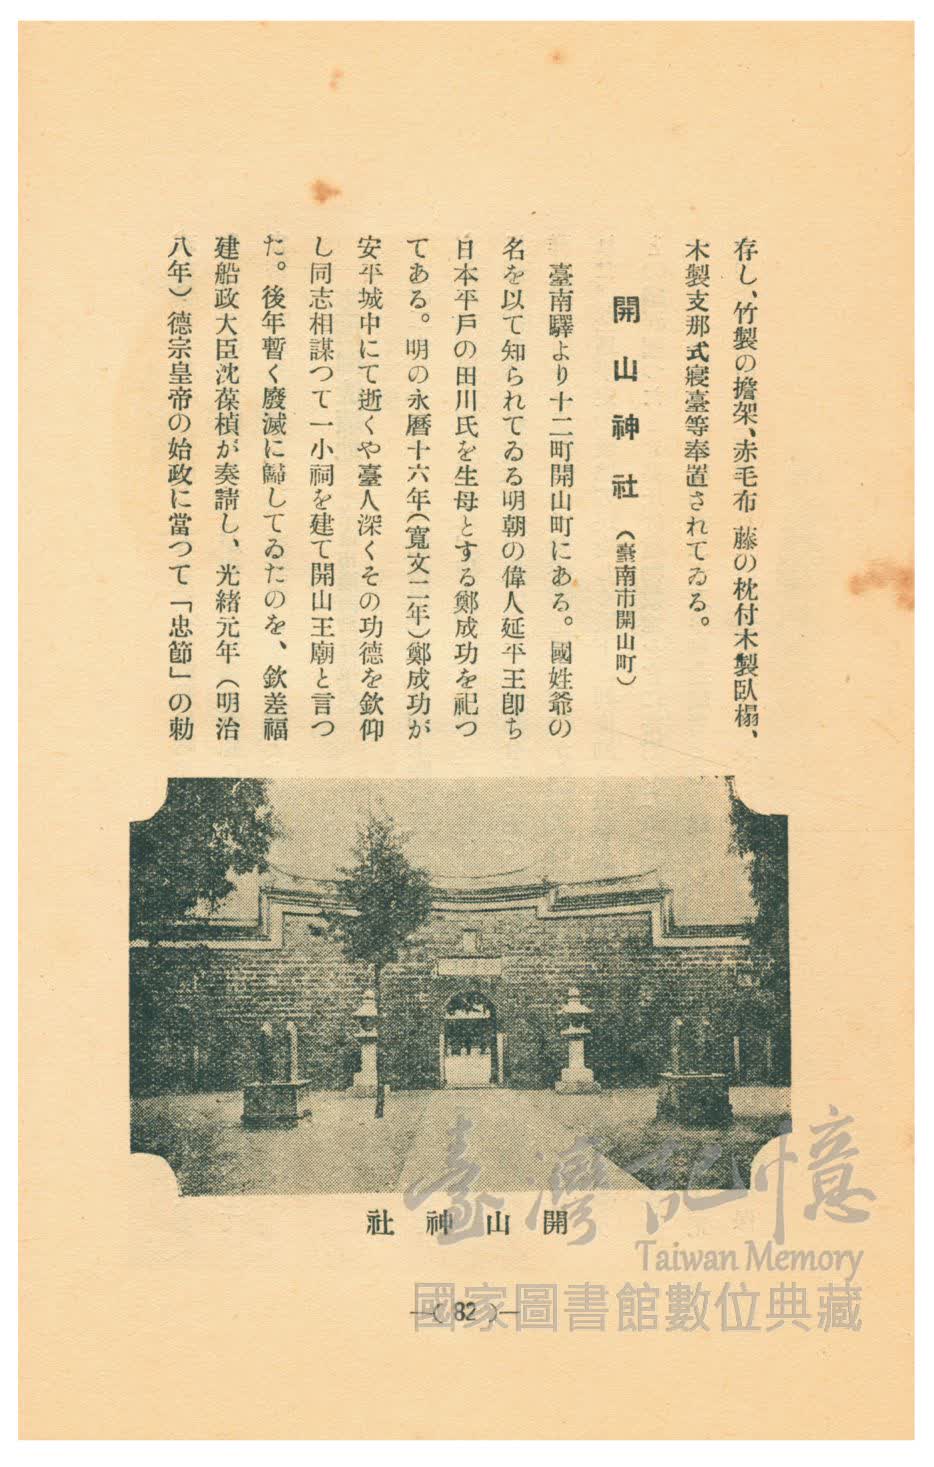 存し、竹製の擔架、赤毛布 藤の枕付木製臥榻、
木製支那式寢臺等奉置されてゐる。
開山神社 （臺南市開山町）
臺南驛より十二町開山町にある。國姓爺の
名を以て知られてゐる明朝の偉人延平王卽ち
日本平戶の田川氏を生母とする鄭成功を祀つ
てある。明の永曆十六年（寬文二年）鄭成功が
安平城中にて逝くや臺人深くその功德を欽仰
し同志相謀つて一小祠を建て開山王廟と言つ
た。後年暫く廢滅に歸してゐたのを、欽差福
建船政大臣沈葆楨が奏請し、光緖元年（明治
八年）德宗皇帝の始政に當つて「忠節」の勅
社神山開
—( 82 )—
臺灣記憶
Taiwan Memory
國家圖書館數位典藏